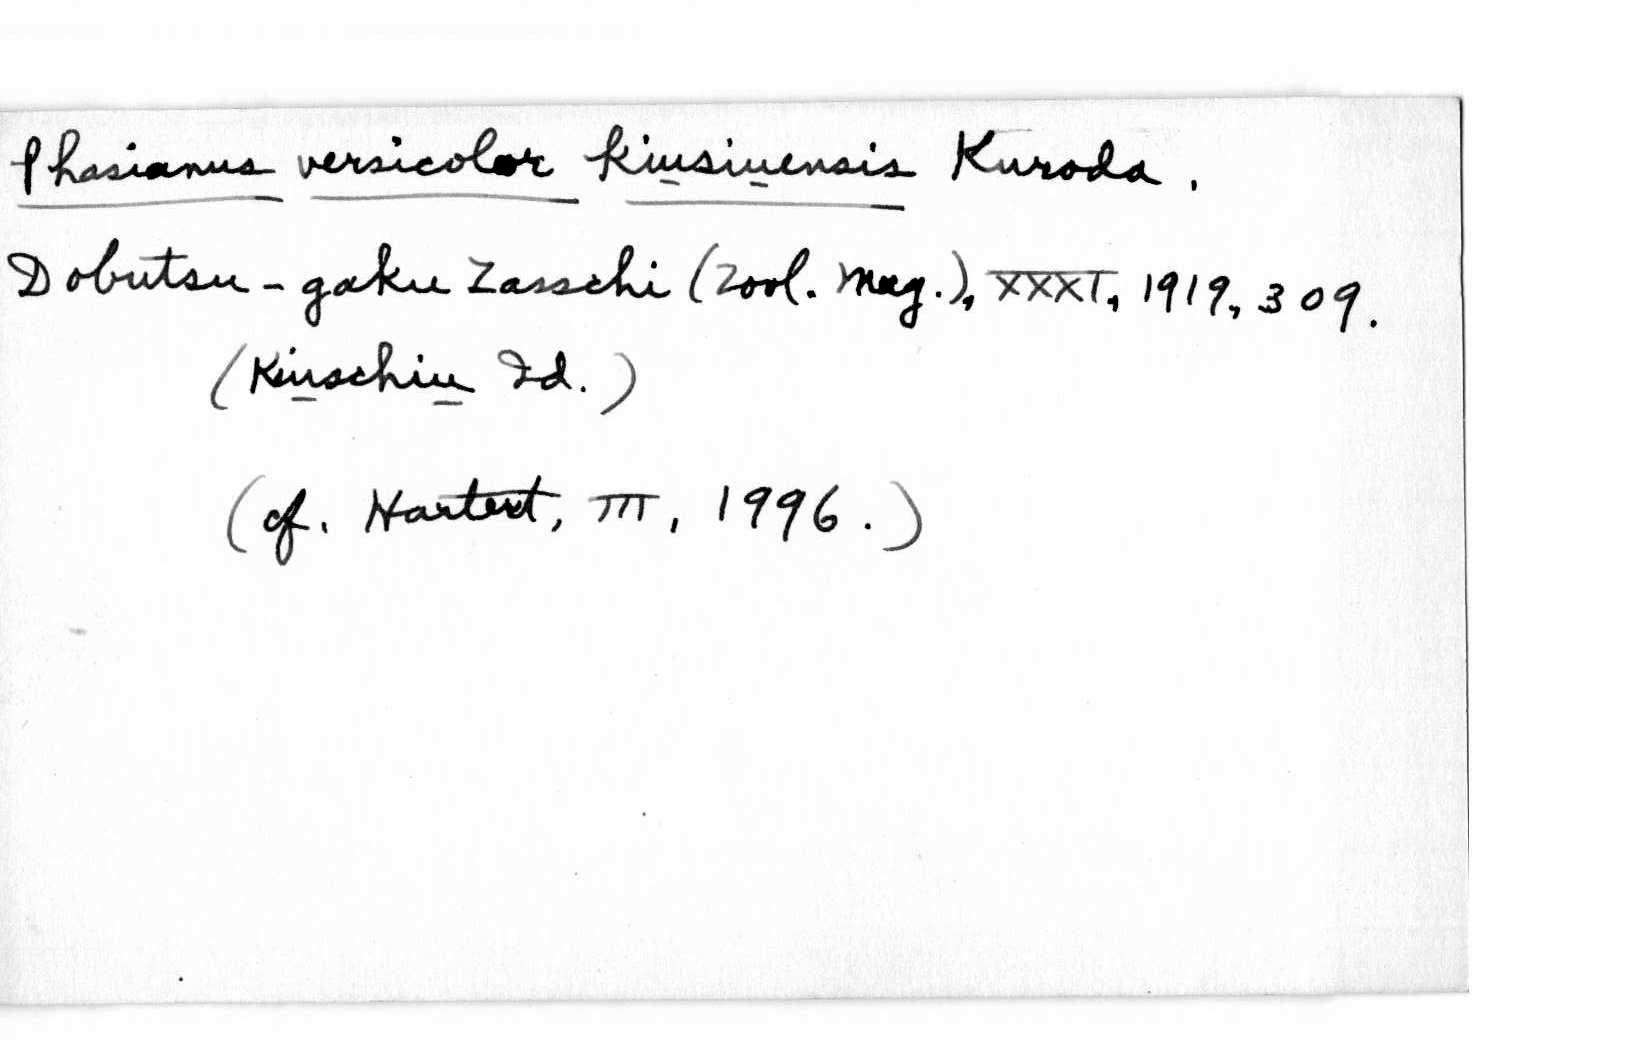 Phasianus versicolor kiusiuensis Kuroda.
Dobutsu-gaku Zasschi (Zool. Mag.), XXXI, 1919, 309.
(Kiuschiu Id.)
(cf. Hartert, III, 1996.)